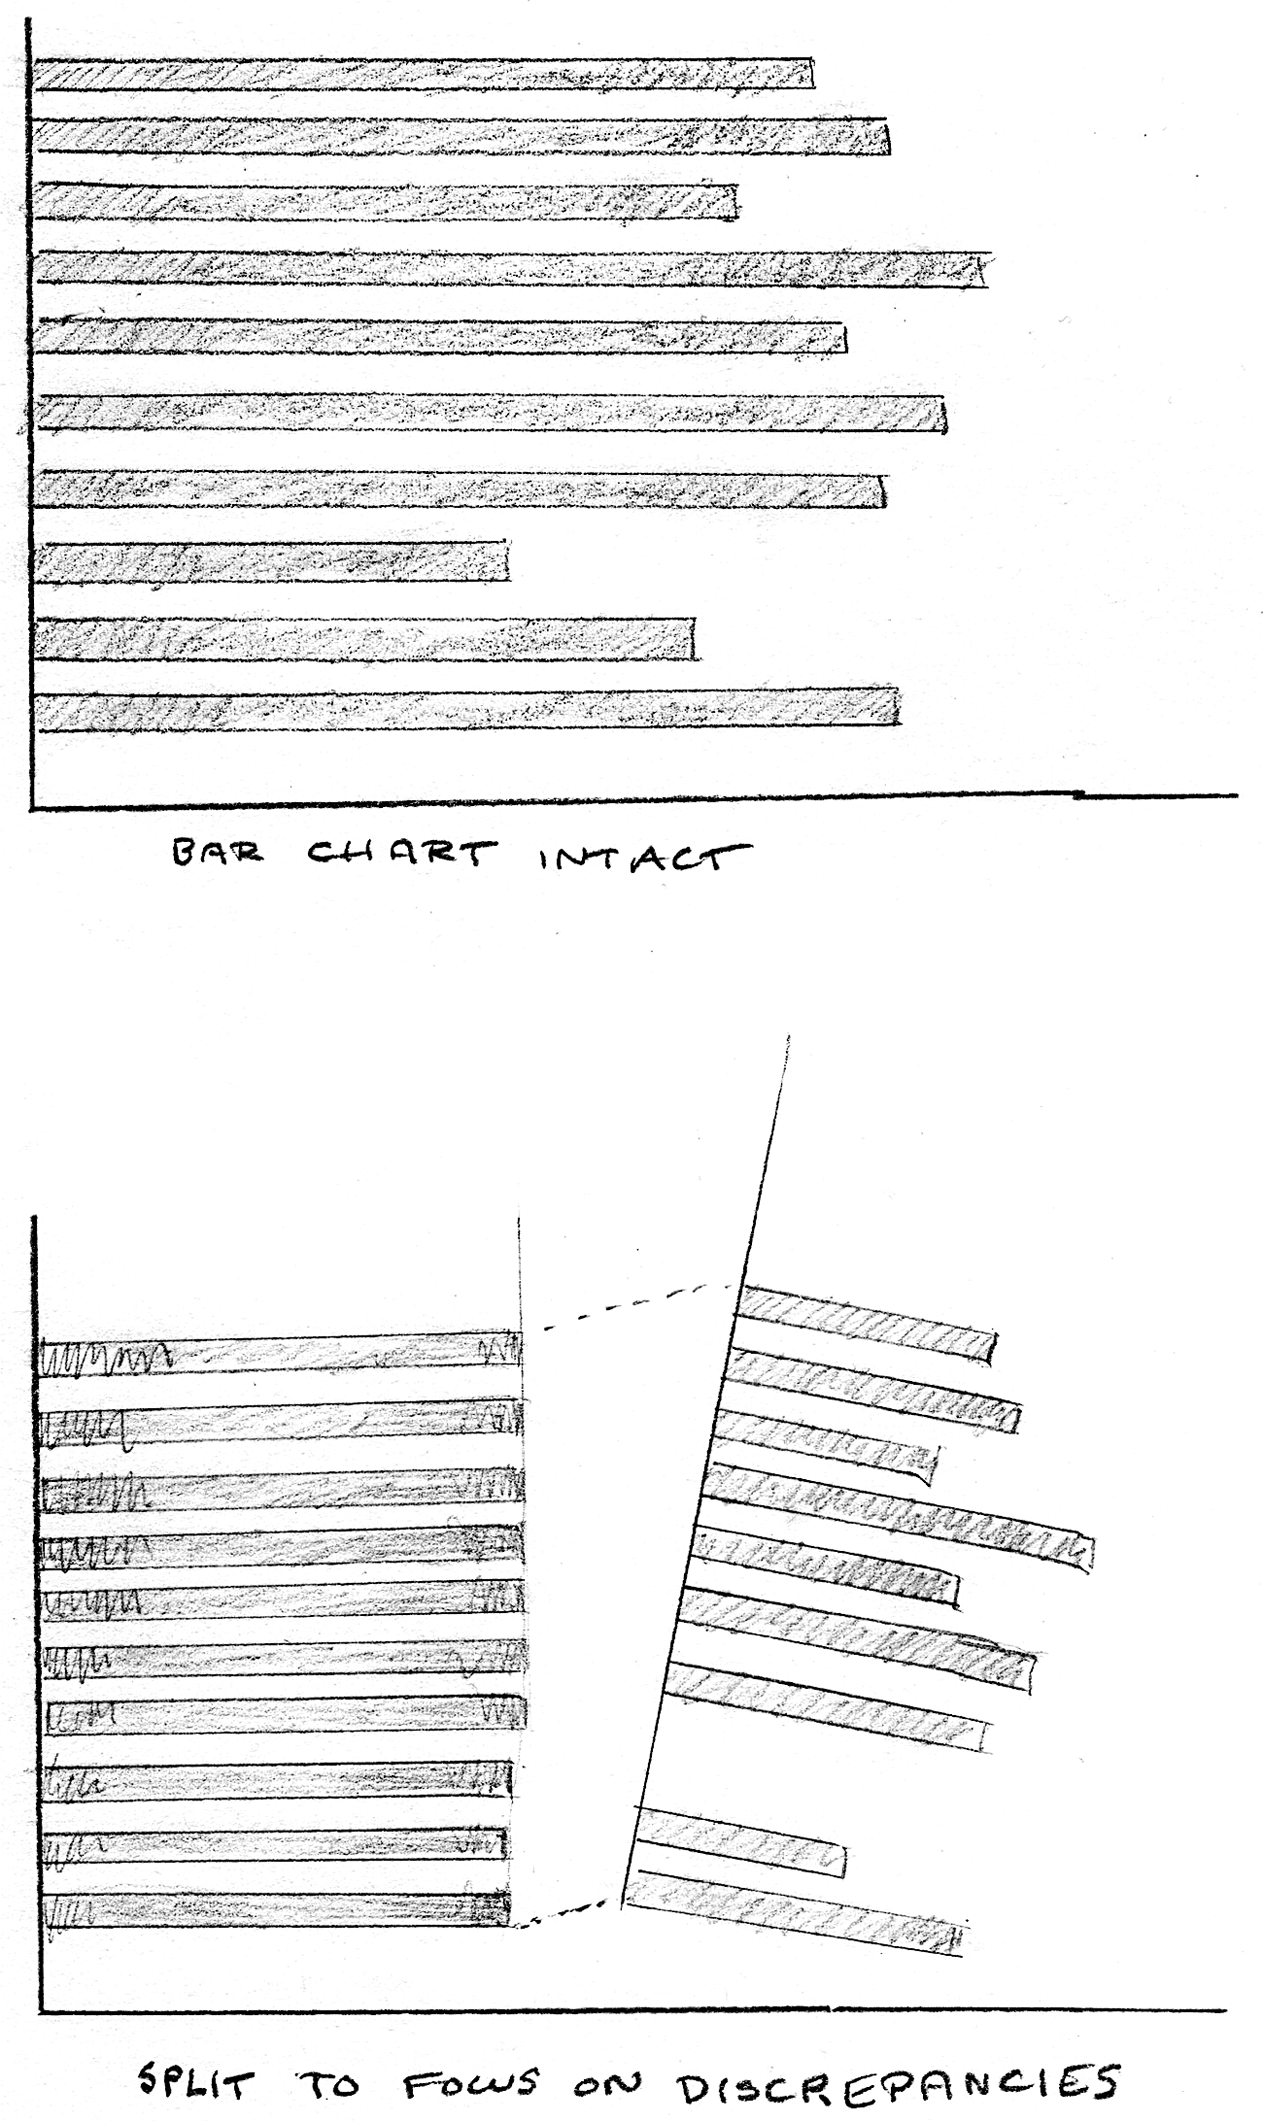 BAR CHART INTACT
SPLIT TO FOCUS ON DISCREPANCIES